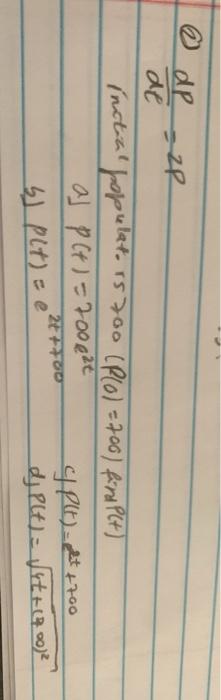 ② dP/dt = 2P
initial populat. is 700 (P(0) = 700) find P(t)
a) P(t) = 700e^{2t}
c) P(t) = e^{2t} + 700
b) P(t) = e^{2t+700}
d) P(t) = √(4t + (700)²)